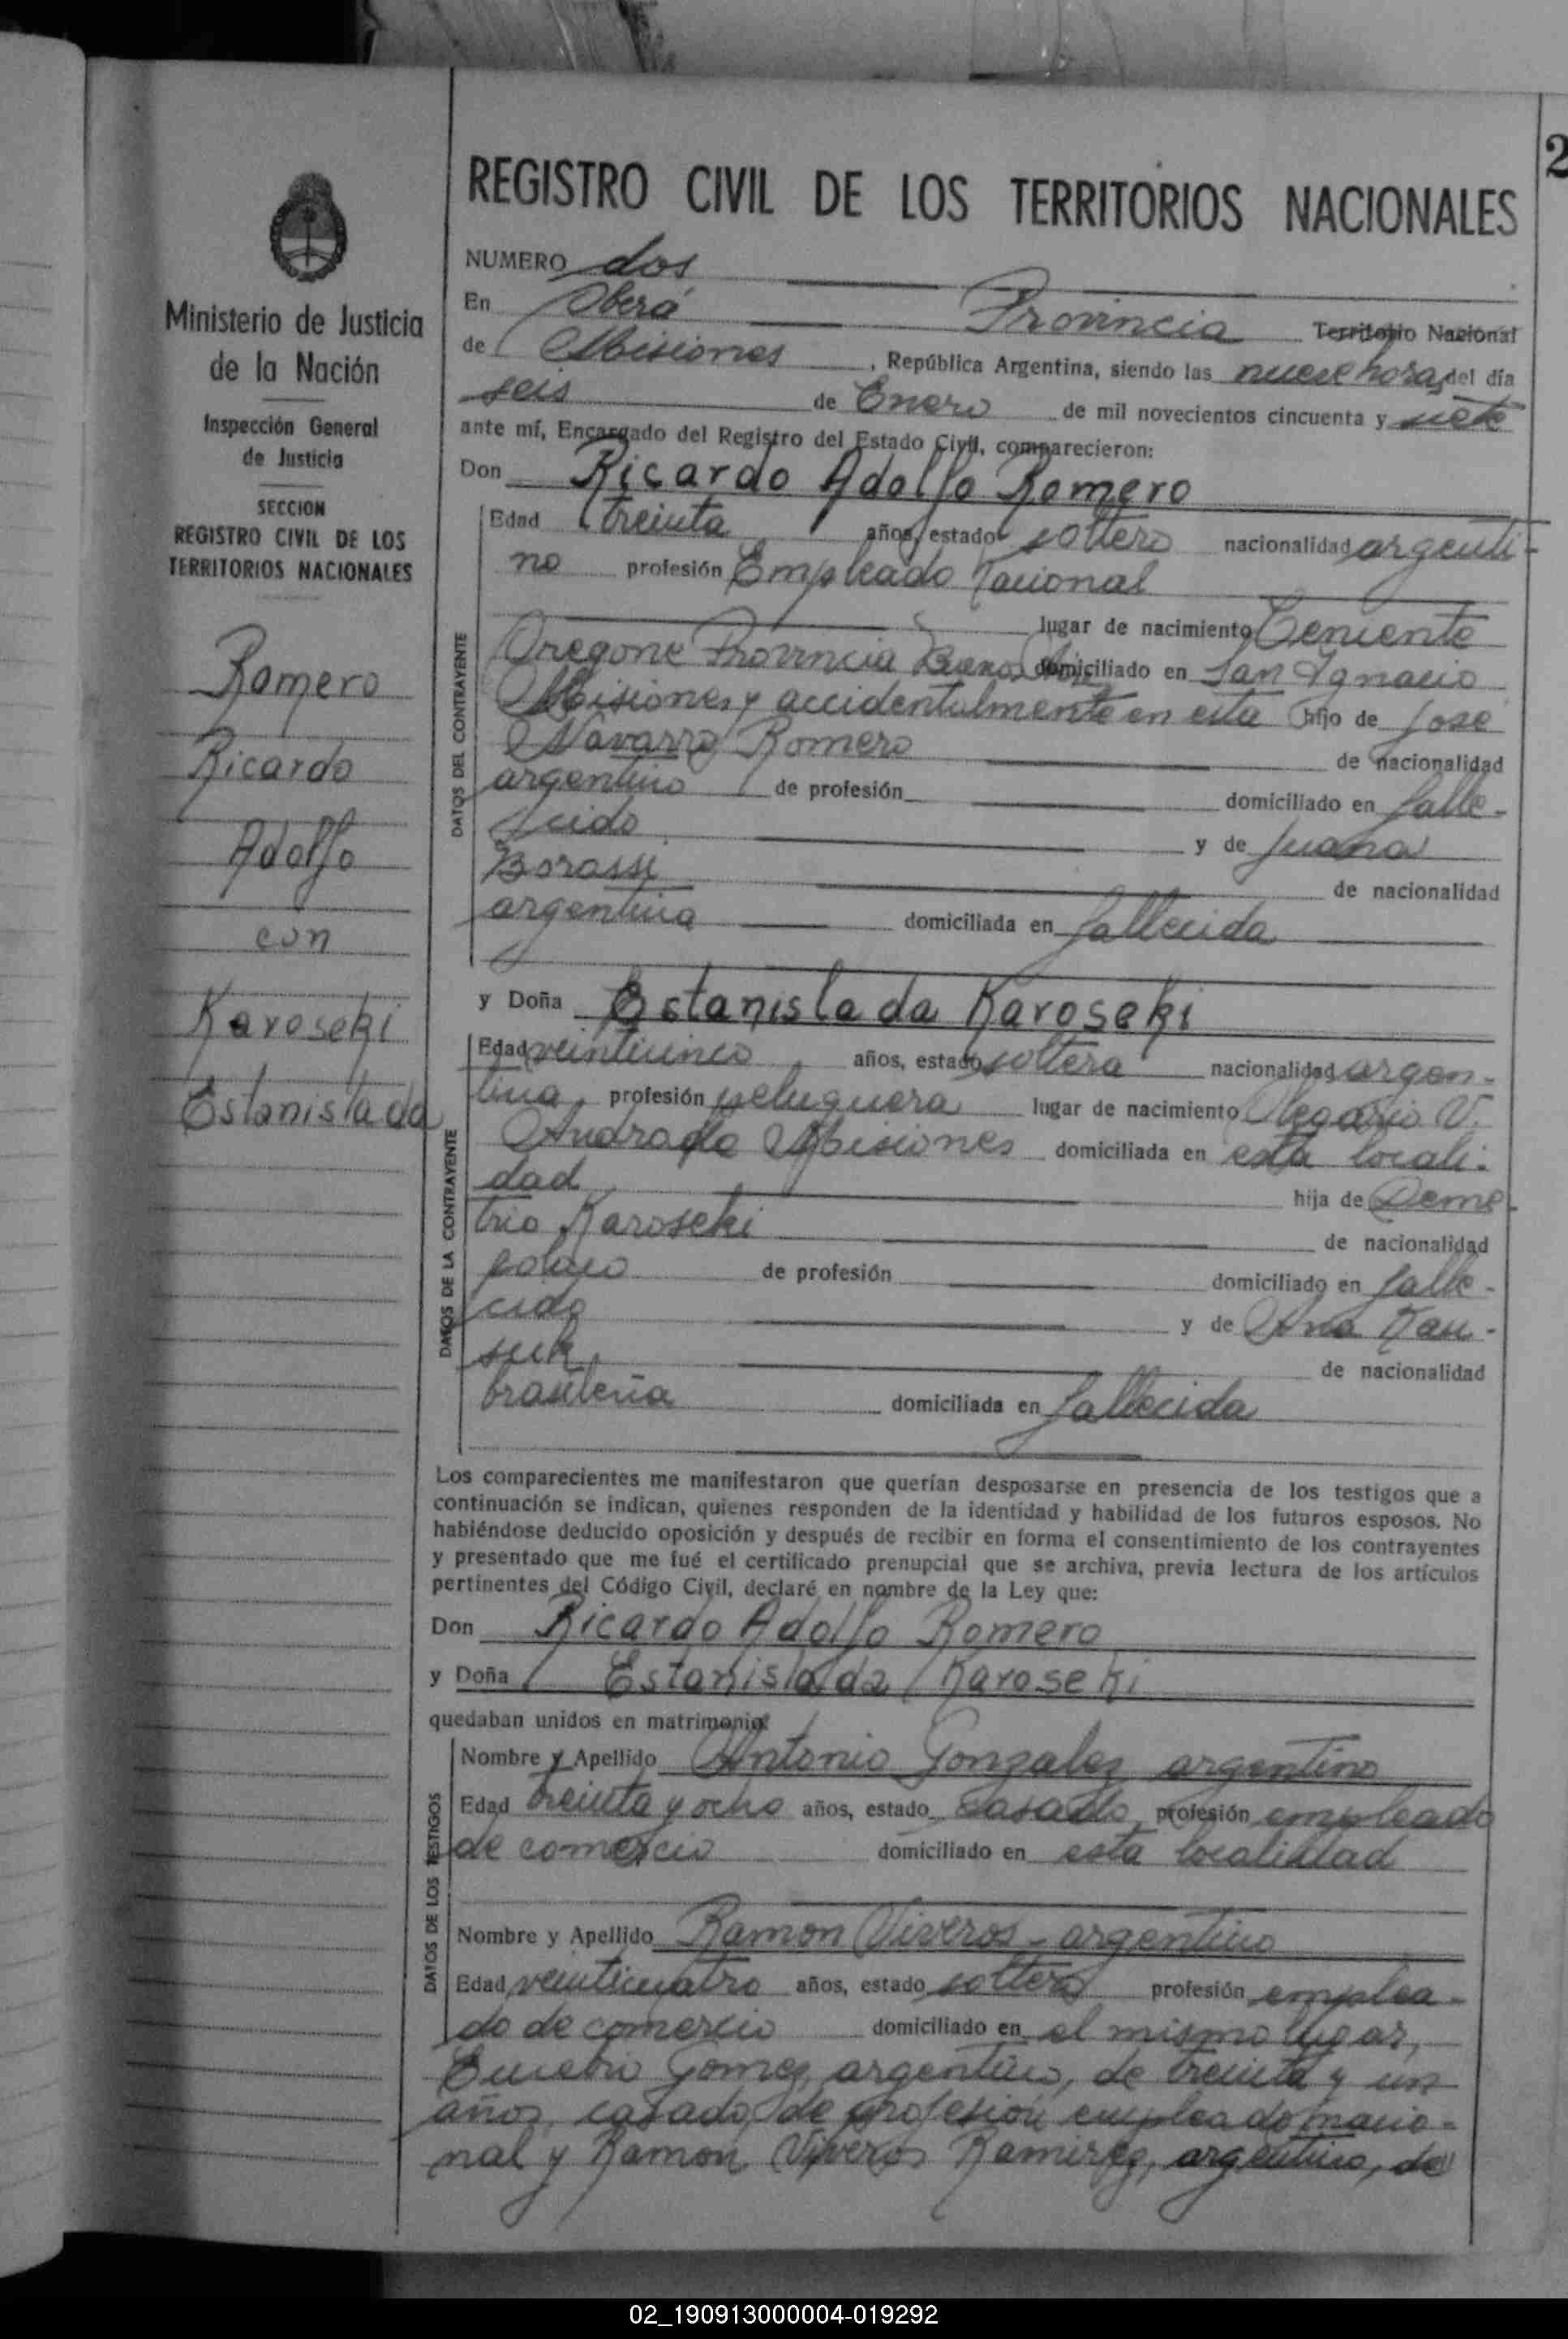 2
REGISTRO CIVIL DE LOS TERRITORIOS NACIONALES
Ministerio de Justicia
de la Nación
Inspección General
de Justicia
SECCION
REGISTRO CIVIL DE LOS
TERRITORIOS NACIONALES
Romero
Ricardo
Adolfo
con
Karoseki
Estanislada
NUMERO dos
En Oberá Provincia Territorio Nacional
de Misiones, República Argentina, siendo las nueve horas del día
seis de Enero de mil novecientos cincuenta y siete
ante mí, Encargado del Registro del Estado Civil, comparecieron:
Don Ricardo Adolfo Romero
DATOS DEL CONTRAYENTE
Edad treinta años, estado soltero nacionalidad argenti-
no profesión Empleado Nacional
lugar de nacimiento Teniente
Oregone Provincia Buenos Aires domiciliado en San Ignacio
Misiones y accidentalmente en esta hijo de José
Navarro Romero de nacionalidad
argentino de profesión domiciliado en falle-
cido y de Juana
Borassi de nacionalidad
argentina domiciliada en fallecida
y Doña Estanislada Karoseki
DATOS DE LA CONTRAYENTE
Edad veinticinco años, estado soltera nacionalidad argen-
tina, profesión peluquera lugar de nacimiento Olegario V.
Andrade Misiones domiciliada en esta locali-
dad hija de Deme-
trio Karoseki de nacionalidad
polaco de profesión domiciliado en falle-
cido y de Ana Kau-
suk de nacionalidad
brasileña domiciliada en fallecida
Los comparecientes me manifestaron que querían desposarse en presencia de los testigos que a
continuación se indican, quienes responden de la identidad y habilidad de los futuros esposos. No
habiéndose deducido oposición y después de recibir en forma el consentimiento de los contrayentes
y presentado que me fué el certificado prenupcial que se archiva, previa lectura de los artículos
pertinentes del Código Civil, declaré en nombre de la Ley que:
Don Ricardo Adolfo Romero
y Doña Estanislada Karoseki
quedaban unidos en matrimonio
DATOS DE LOS TESTIGOS
Nombre y Apellido Antonio Gonzalez argentino
Edad treinta y ocho años, estado casado profesión empleado
de comercio domiciliado en esta localidad
Nombre y Apellido Ramon Viveros - argentino
Edad veinticuatro años, estado soltero profesión emplea-
do de comercio domiciliado en el mismo lugar,
Eusebio Gomez, argentino, de treinta y un
años, casado, de profesión empleado nacio-
nal y Ramon Viveros Ramirez, argentino, de
02_190913000004-019292